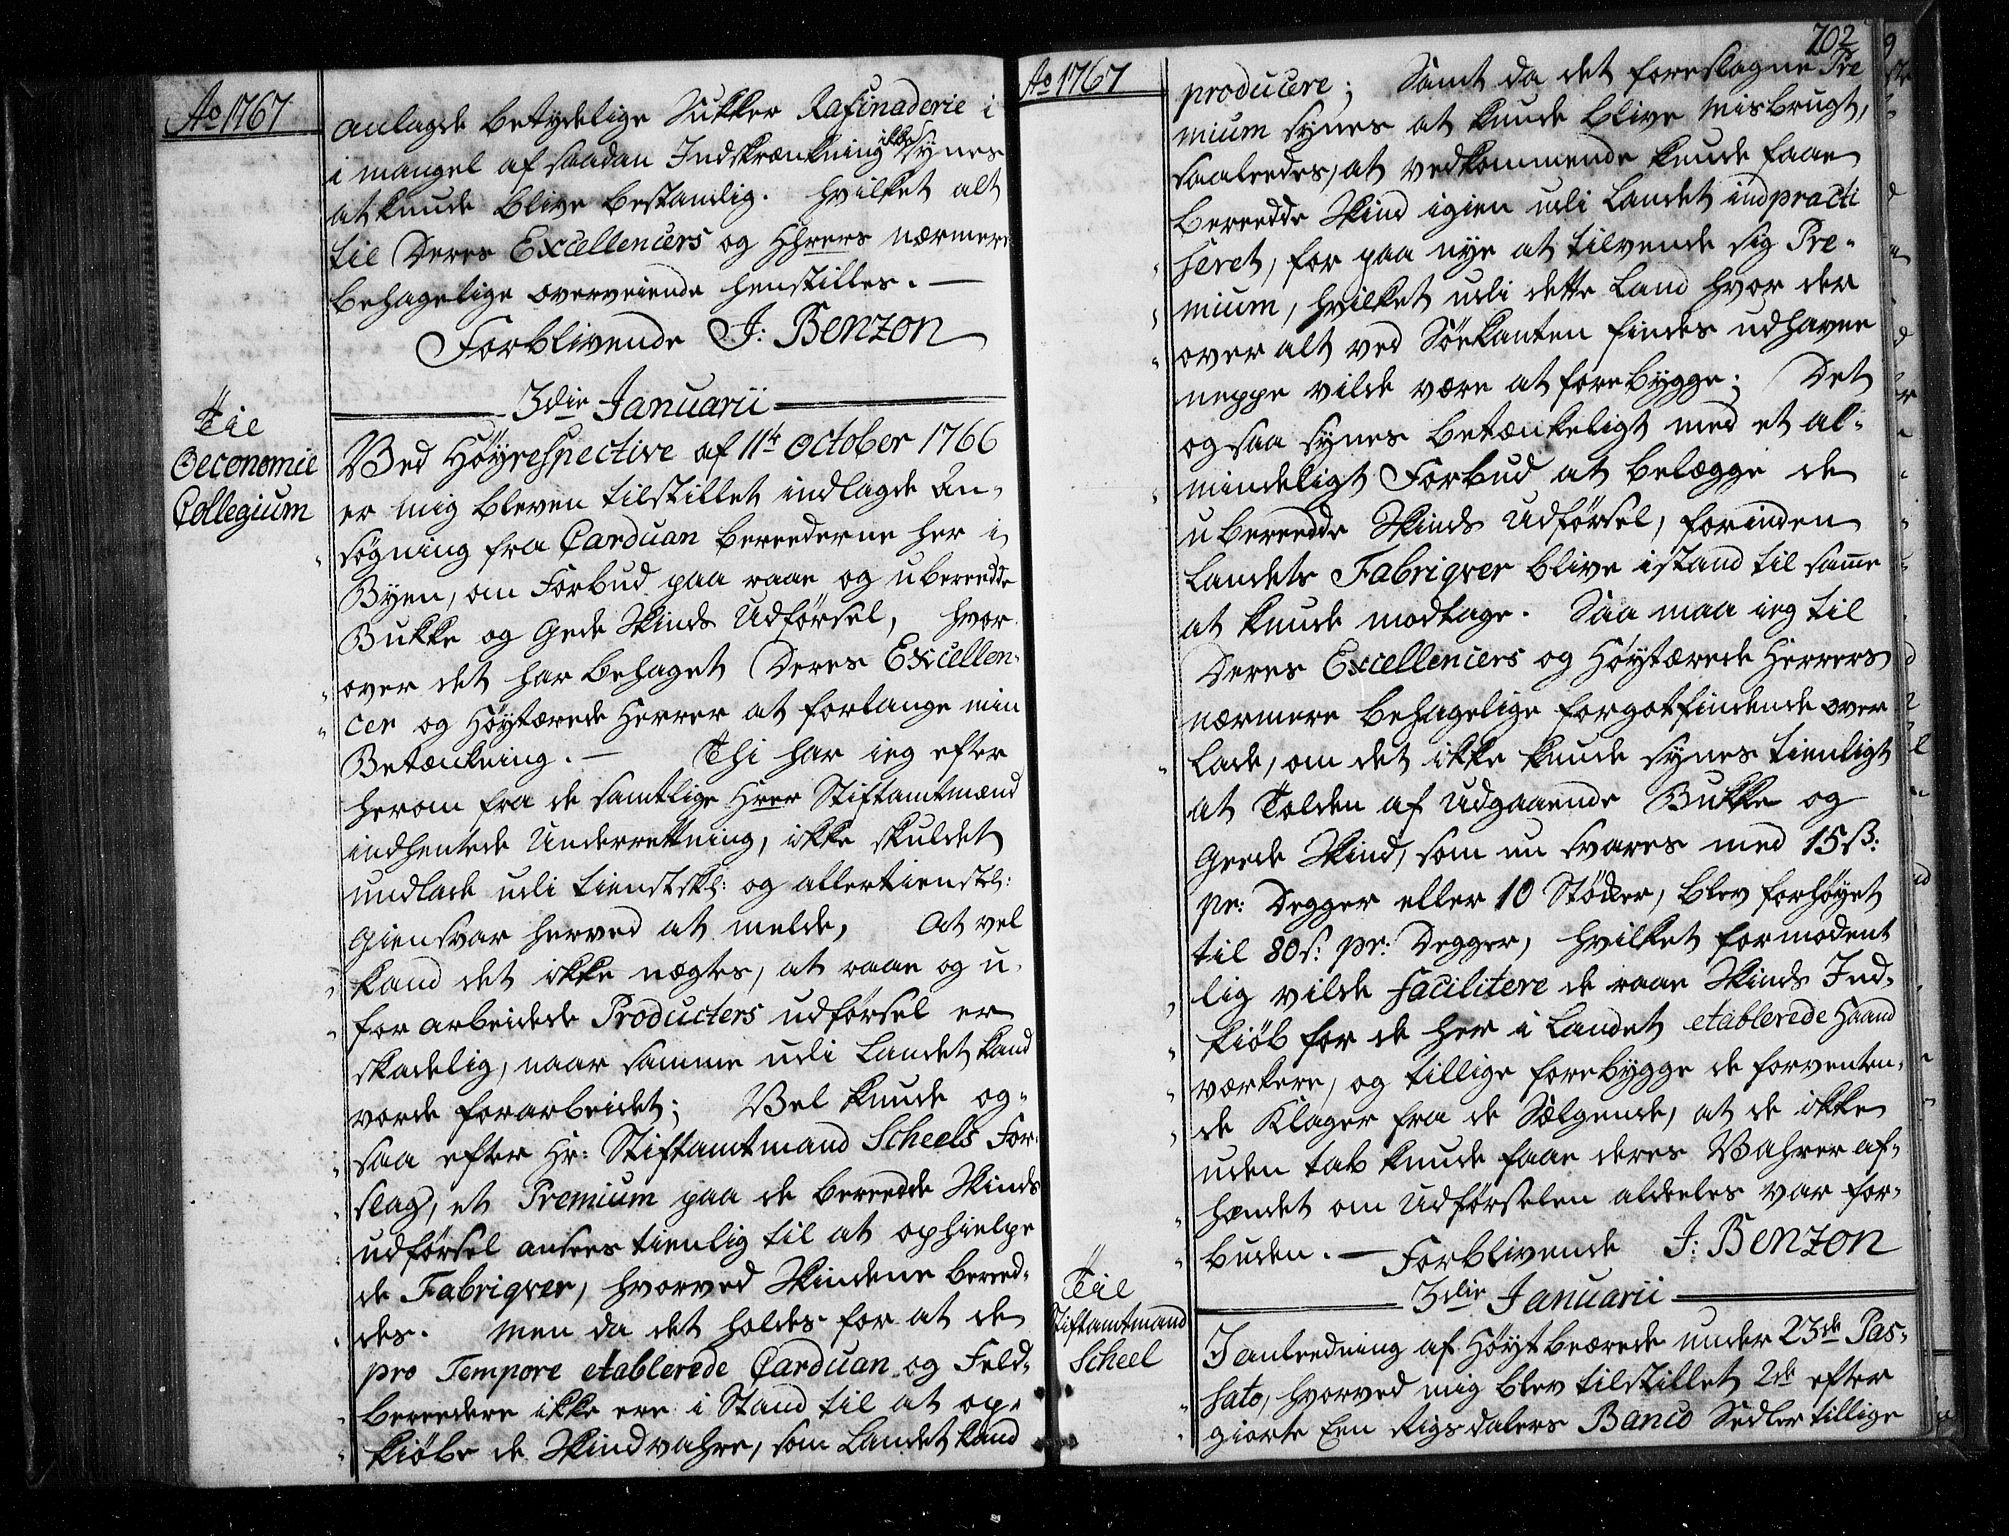 Ao 1767
anlagde betydelige Sukker Rafinaderie i
i mangel af saadan Indskrænkning ikke synes
at kunde blive bestandig. Hvilket alt
til Deres Excellencers og HHrers nærmere
behagelige overveiende henstilles. —
Forblivende J: Benzon
3die Januarii
Til
Oeconomie
Collegium
Ved Høyrespective af 11te October 1766
er mig bleven tilstillet indlagde An-
søgning fra Carduan bereederne her i
Byen, om Forbud paa raae og ubereedde
Bukke og Gede Skinds Udførsel, hvor-
over det har behaget Deres Excellen-
cer og Høytærede Herrer at forlange min
Betænkning. — Thi har ieg efter
herom fra de samtlige Hrer Stiftamtmænd
indhentede Underrettning, ikke skuldet
undlade udi tienstskl: og allertienstl:
Giensvar herved at melde, At vel
kand det ikke nægtes, at raae og u-
forarbeidede Producters udførsel er
skadelig, naar samme udi Landet kand
vorde forarbeidet; Vel kunde og-
saa efter Hr: Stiftamtmand Scheels For-
slag, et Premium paa de bereedde Skinds
udførsel ansees tienlig til at ophielpe
de Fabriqver, hvorved Skindene bereed-
des. Men da det holdes for at de
pro Tempore etablerede Carduan og Feld-
bereedere ikke ere i Stand til at op-
kiøbe de Skindvahre, som Landet kand
702
Ao 1767
producere; Samt da det foreslagne Pre
mium synes at kunde blive misbrugt,
saaleedes, at vedkommende kunde faae
bereedde Skind igien udi Landet indpracti
seret, for paa nye at tilvende sig Pre-
mium, hvilket udi dette Land hvor der
over alt ved Søekanten findes udhavne
neppe vilde være at forebygge; Det
ogsaa synes betænkeligt med et al-
mindeligt Forbud at belægge de
ubereedde Skinds Udførsel, forinden
Landets Fabriqver blive istand til samme
at kunde modtage. Saa maa ieg til
Deres Excellencers og Høytærede Herrers
nærmere behagelige forgotfindende over
lade, om det ikke kunde synes tienligt
at Tolden af Udgaaende Bukke og
Geede Skind, som nu svares med 15 ß:
pr: Degger eller 10 Støcker, blev forhøyet
til 80 s: pr: Degger, hvilket formodent
lig vilde facilitere de raae Skinds Ind-
kiøb for de her i Landet etablerede Haand
værkere, og tillige forebygge de forventen-
de Klager fra de Sælgende, at de ikke
uden tab kunde faae deres Vahrer af-
hændet om Udførselen aldeeles var for-
buden. — Forblivende J: Benzon
3die Januarii
Til
Stiftamtmand
Scheel
I anleedning af Høystbeærede under 23de Pas-
sato, hvorved mig blev tilstillet 2de efter
giorte Een Rigsdalers Banco Sedler tillige